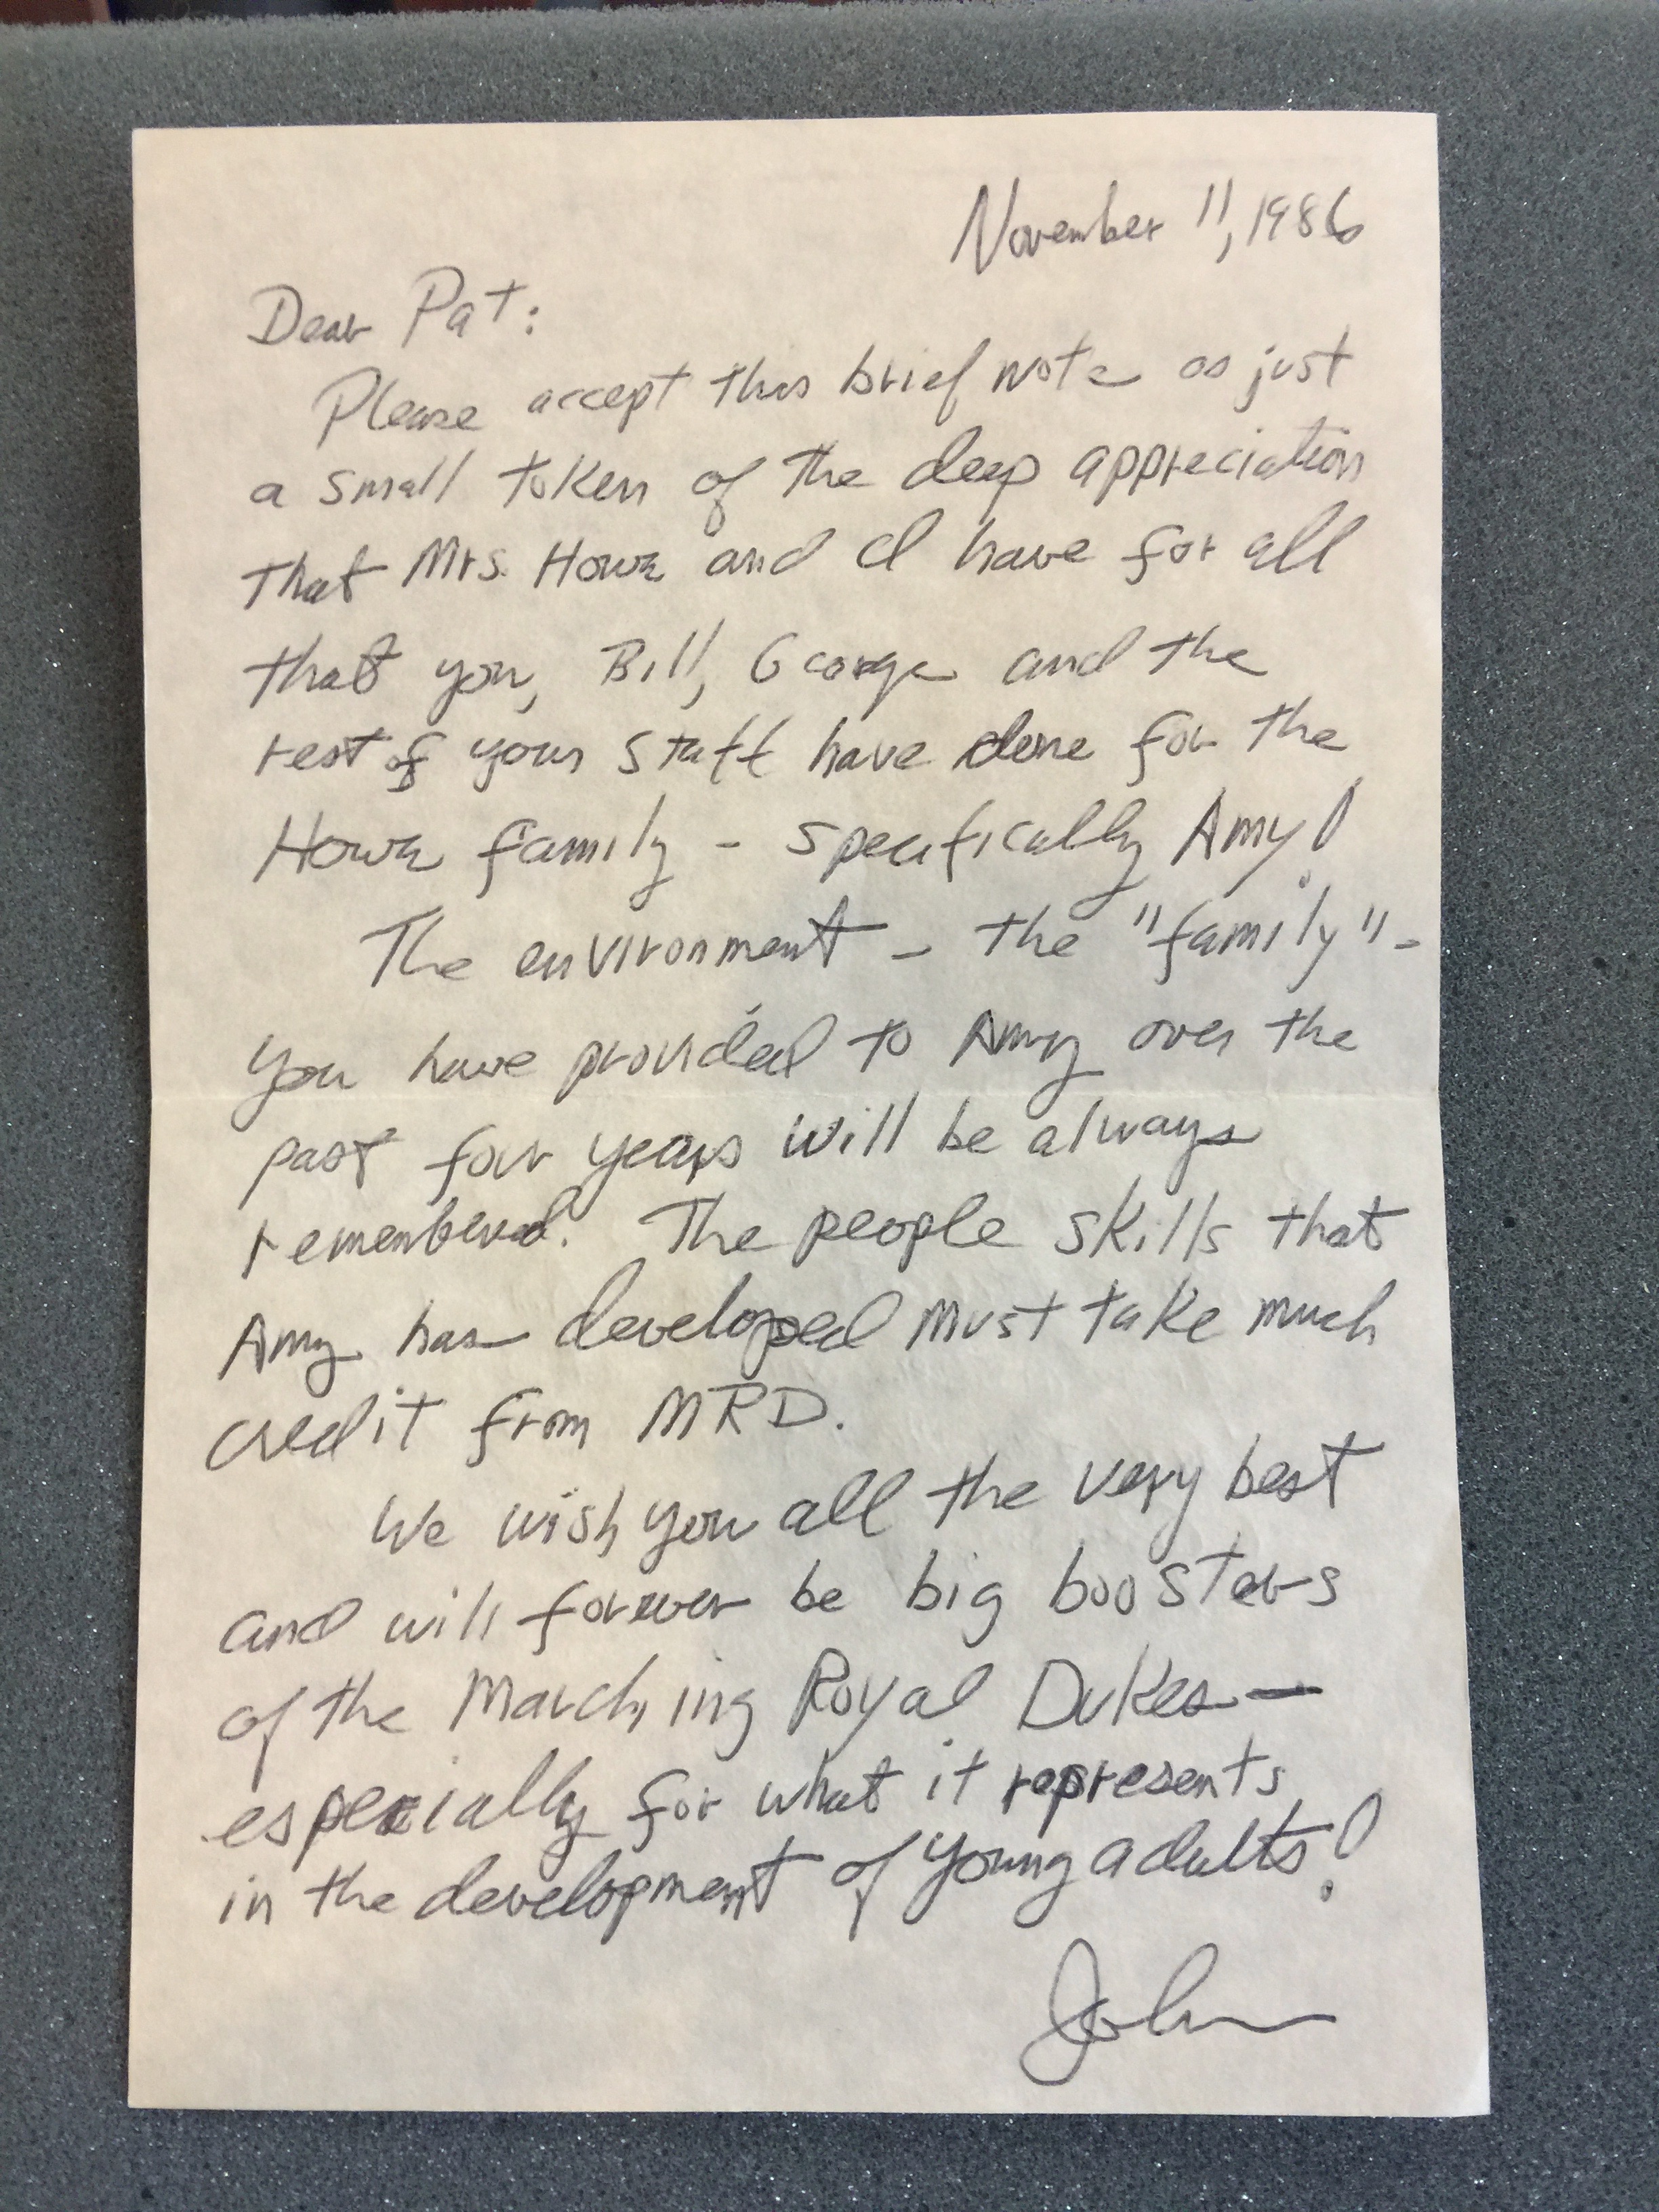 November 11, 1986
Dear Pat:
Please accept this brief note as just
a small token of the deep appreciation
that Mrs. Howe and I have for all
that you, Bill, George and the
rest of your staff have done for the
Howe family - specifically Amy!
The environment - the "family" -
you have provided to Amy over the
past four years will be always
remembered. The people skills that
Amy has developed must take much
credit from MRD.
We wish you all the very best
and will forever be big boosters
of the Marching Royal Dukes—
especially for what it represents
in the development of young adults!
John